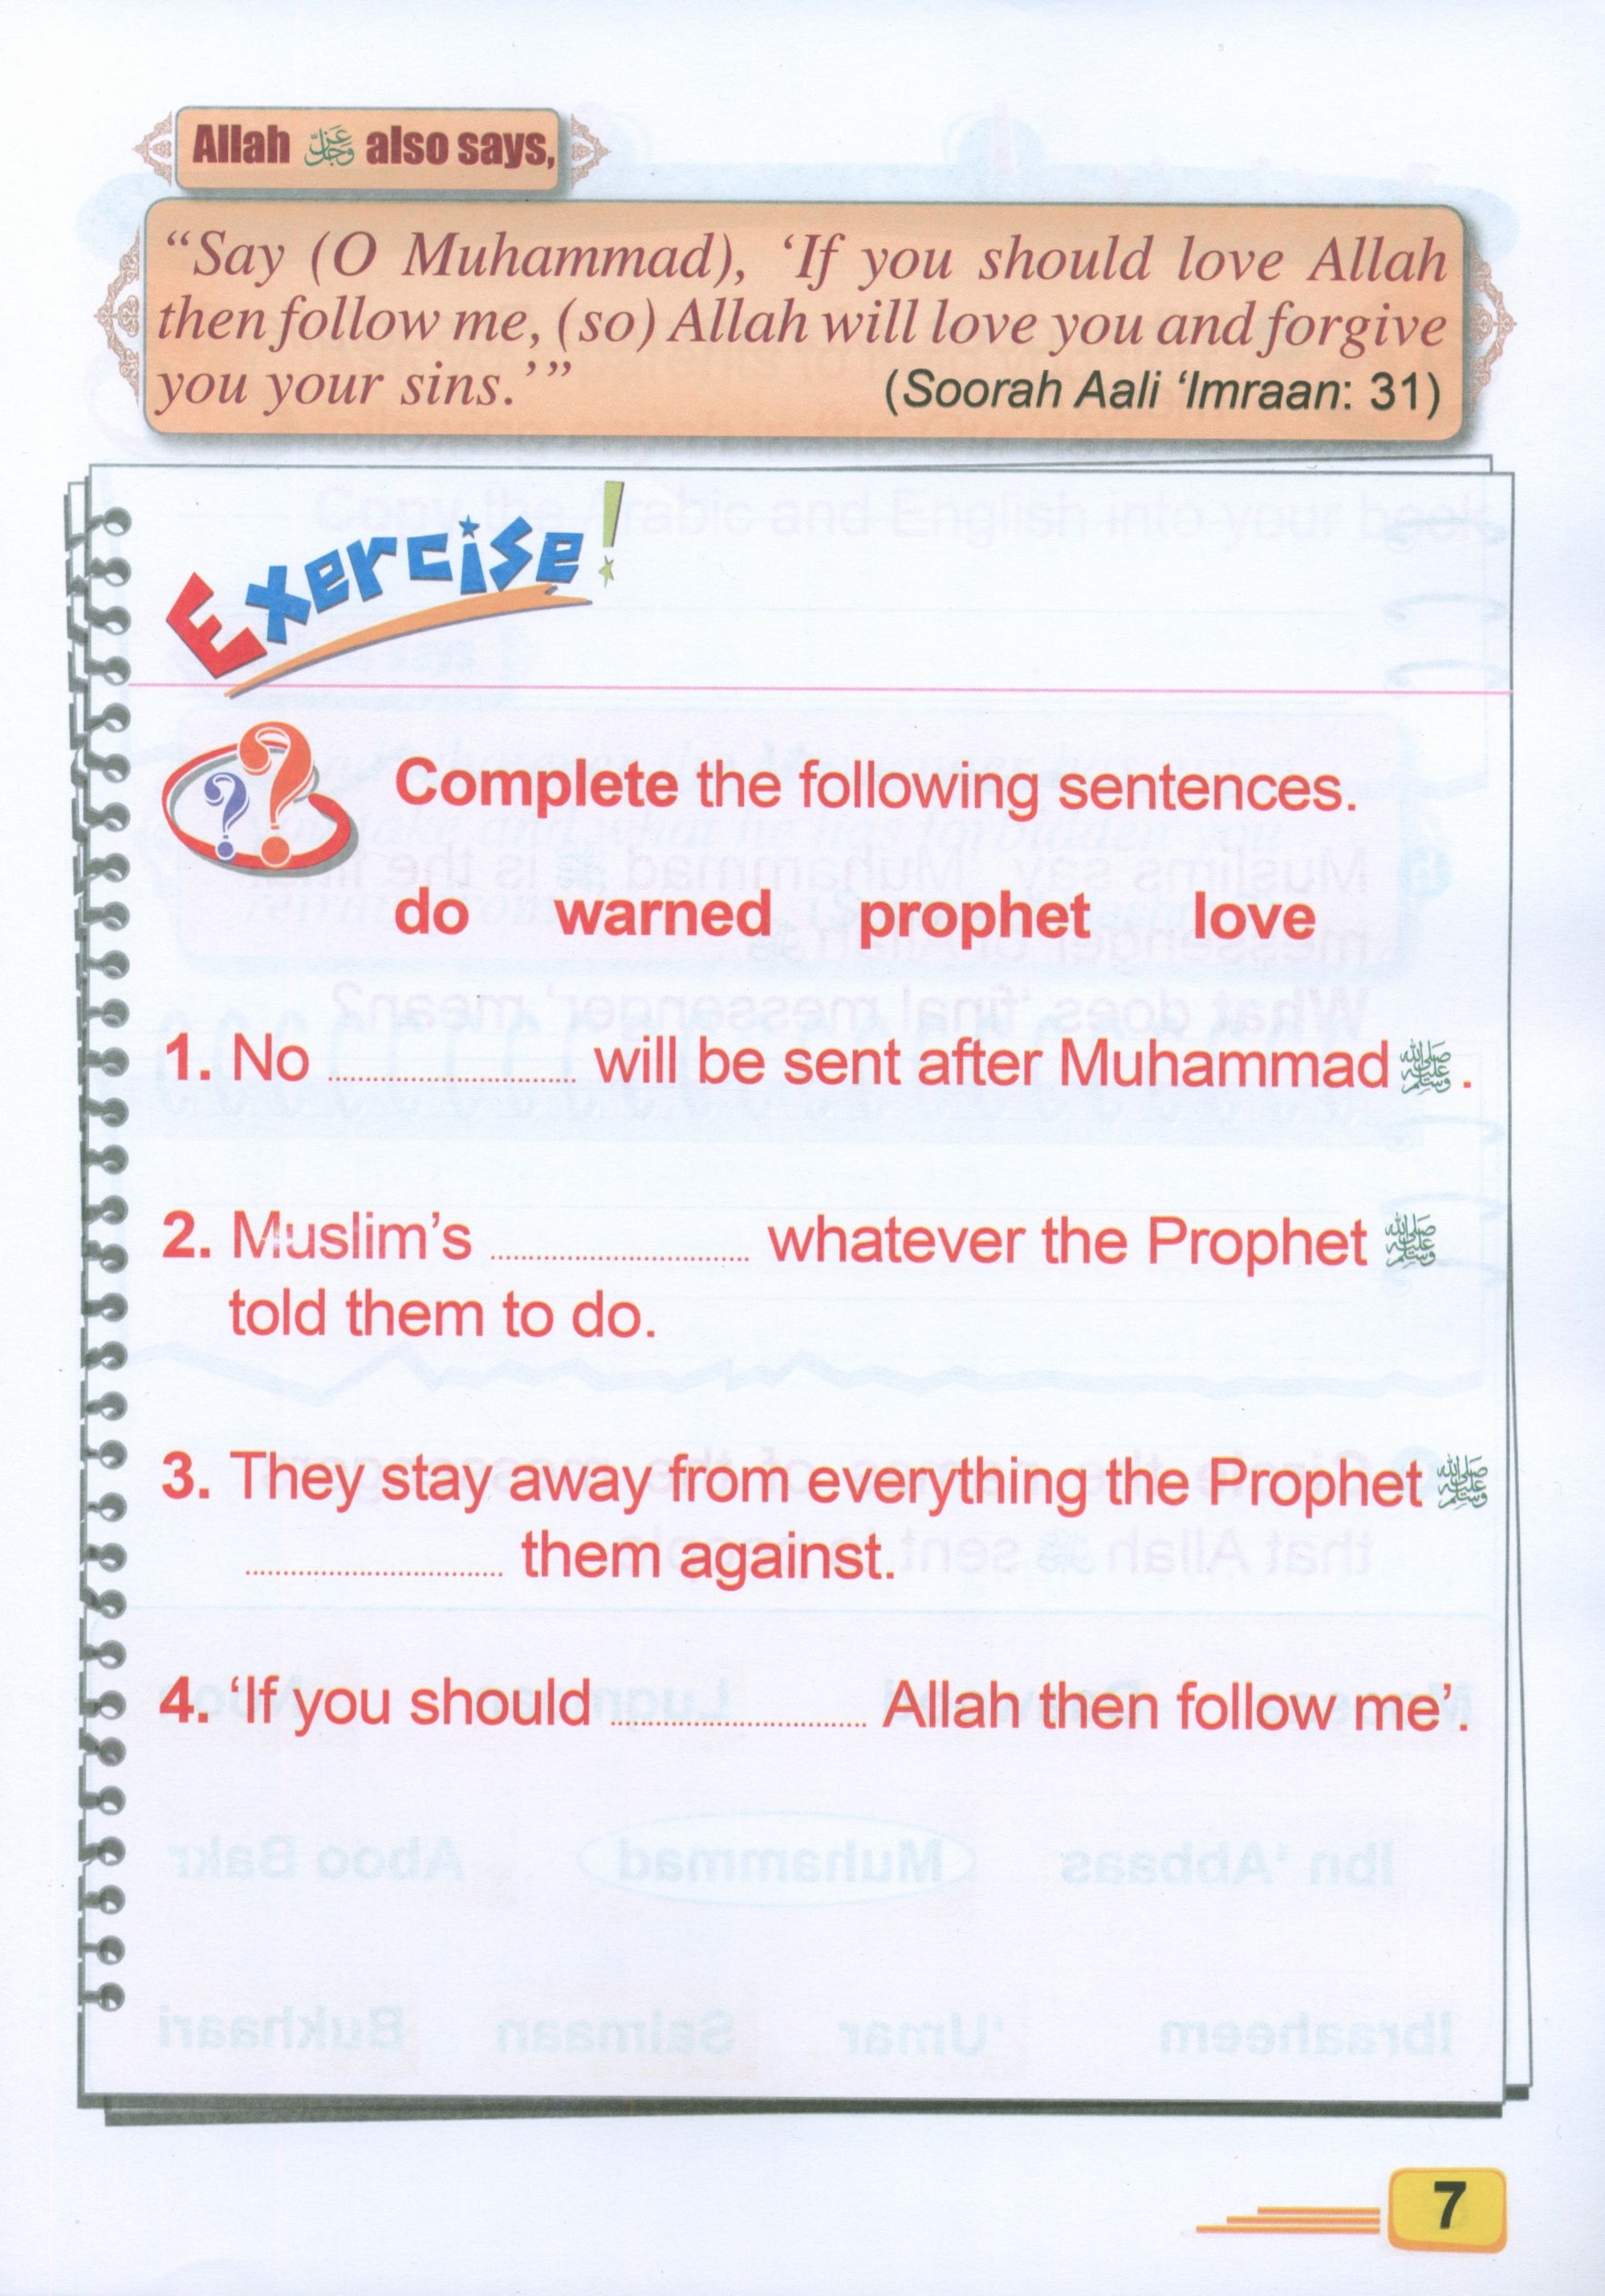 Allah عز وجل also says,
“Say (O Muhammad), ‘If you should love Allah
then follow me, (so) Allah will love you and forgive
you your sins.’” (Soorah Aali ‘Imraan: 31)
Exercise!
Complete the following sentences.
do warned prophet love
1. No ........................ will be sent after Muhammad صلى الله عليه وسلم .
2. Muslim’s ........................ whatever the Prophet صلى الله عليه وسلم
told them to do.
3. They stay away from everything the Prophet صلى الله عليه وسلم
........................ them against.
4. ‘If you should ........................ Allah then follow me’.
7